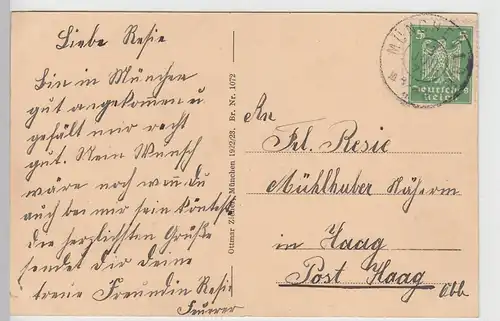 Liebe Resie
Bin in München
gut angekommen u
gefällt mir recht
gut. Mein Wunsch
wäre noch wen̄ du
auch bei mir sein köntest
die herzlichsten Grüße
sendet Dir deine
treue Freundin Resi
Ottmar Zieher, München 1922/23. Br. Nr. 1072
MÜNCHEN
5 5
Deutsches
Reich
An
Frl. Resie
Mühlhuber Näherin
in Haag
Post Haag
Obb